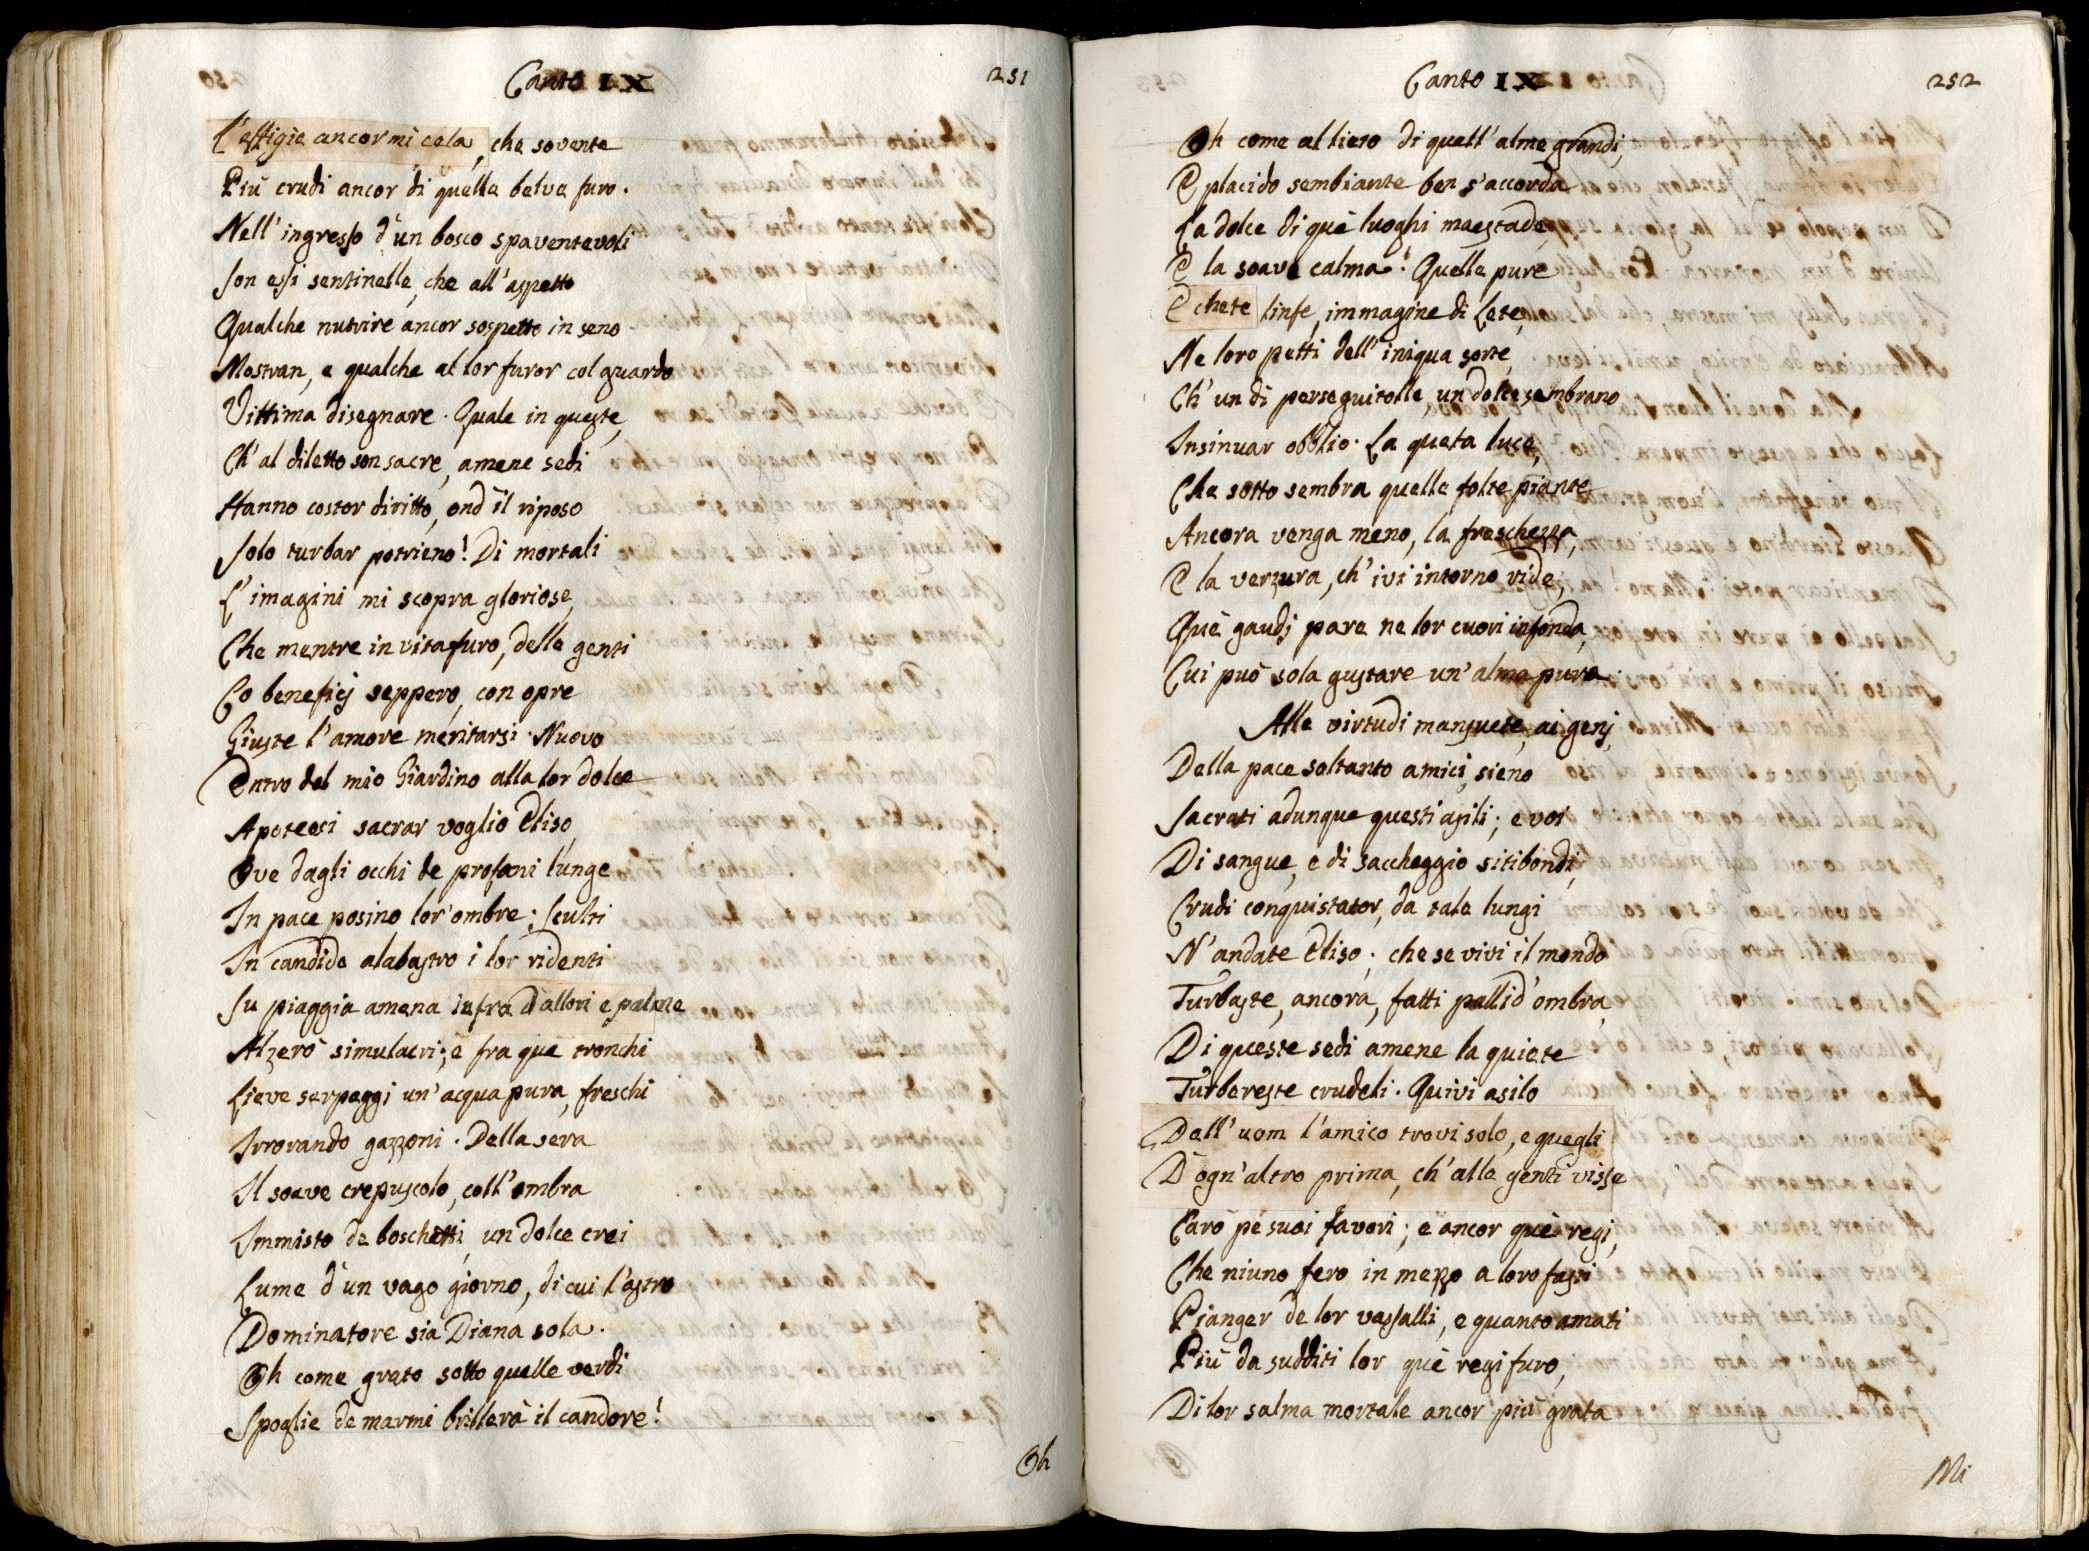 Canto IX
251
L'effigie ancor mi cela, che sovente
Più crudi ancor di quelle belve furo.
Nell'ingresso d'un bosco spaventevoli
Son essi sentinelle, che all'aspetto
Qualche nutrire ancor sospetto in seno
Mostran, e qualche al lor furor col guardo
Vittima disegnare. Quale in queste,
Ch'al diletto son sacre, amene sedi
Hanno costor diritto, ond'il riposo
Solo turbar potrieno! Di mortali
L'imagini mi scopra gloriose,
Che mentre in vita furo, delle genti
Co beneficj seppero, con opre
Giuste l'amore meritarsi. Nuovo
Entro del mio Giardino alla lor dolce
Apoteosi sacrar voglio Eliso,
Ove dagli occhi de profani lunge
In pace posino lor'ombre; Sculti
In candido alabastro i lor ridenti
Su piaggia amena infra d'allori e palme
Alzerò simulacri; e fra que tronchi
Lieve serpeggi un'acqua pura, freschi
Irrorando gazzoni. Della sera
Il soave crepuscolo, coll'ombra
Immisto de boschetti, un dolce crei
Lume d'un vago giorno, di cui l'astro
Dominatore sia Diana sola.
Oh come grato sotto quelle verdi
Spoglie de marmi brillerà il candore!
Oh
Canto IX
252
Oh come al lieto di quell'alme grandi,
E placido sembiante ben s'accorda
La dolce di què luoghi maestade,
E la soave calma! Quelle pure
E chete linfe, immagine di Lete,
Ne loro petti dell'iniqua sorte,
Ch'un dì perseguitolle, un dolce sembrano
Insinuar obblio. La queta luce,
Che sotto sembra quelle folte piante
Ancora venga meno, la freschezza,
E la verzura, ch'ivi intorno vide,
Què gaudj pare ne lor cuori infonda,
Cui può sola gustare un'alma pura.
Alle virtudi mansuete, ai genj
Della pace soltanto amici, sieno
Sacrati adunque questi asili; e voi
Di sangue, e di saccheggio sitibondi,
Crudi conquistator, da tale lungi
N'andate Eliso; che se vivi il mondo
Turbaste, ancora, fatti pallid'ombra,
Di queste sedi amene la quiete
Turbereste crudeli. Quivi asilo
Dell'uom l'amico trovi solo, e quegli
D'ogn'altro prima, ch'alle genti visse
Caro pe suoi favori; e ancor què regi,
Che niuno fero in mezzo a loro fasti
Pianger de lor vassalli, e quanto amati
Più da sudditi lor què regi furo,
Di lor salma mortale ancor più grata
Mi